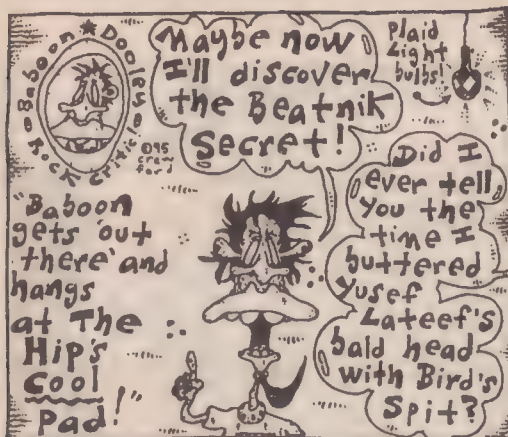 Baboon ★ Dooley
Rock Critic!
©95
craw
ford
Maybe now
I'll discover
the Beatnik
Secret!
Plaid
Light
bulbs!
"Baboon
gets 'out
there' and
hangs
at The
Hip's
Cool
Pad!"
Did I
ever tell
you the
time I
buttered
Yusef
Lateef's
bald head
with Bird's
Spit?